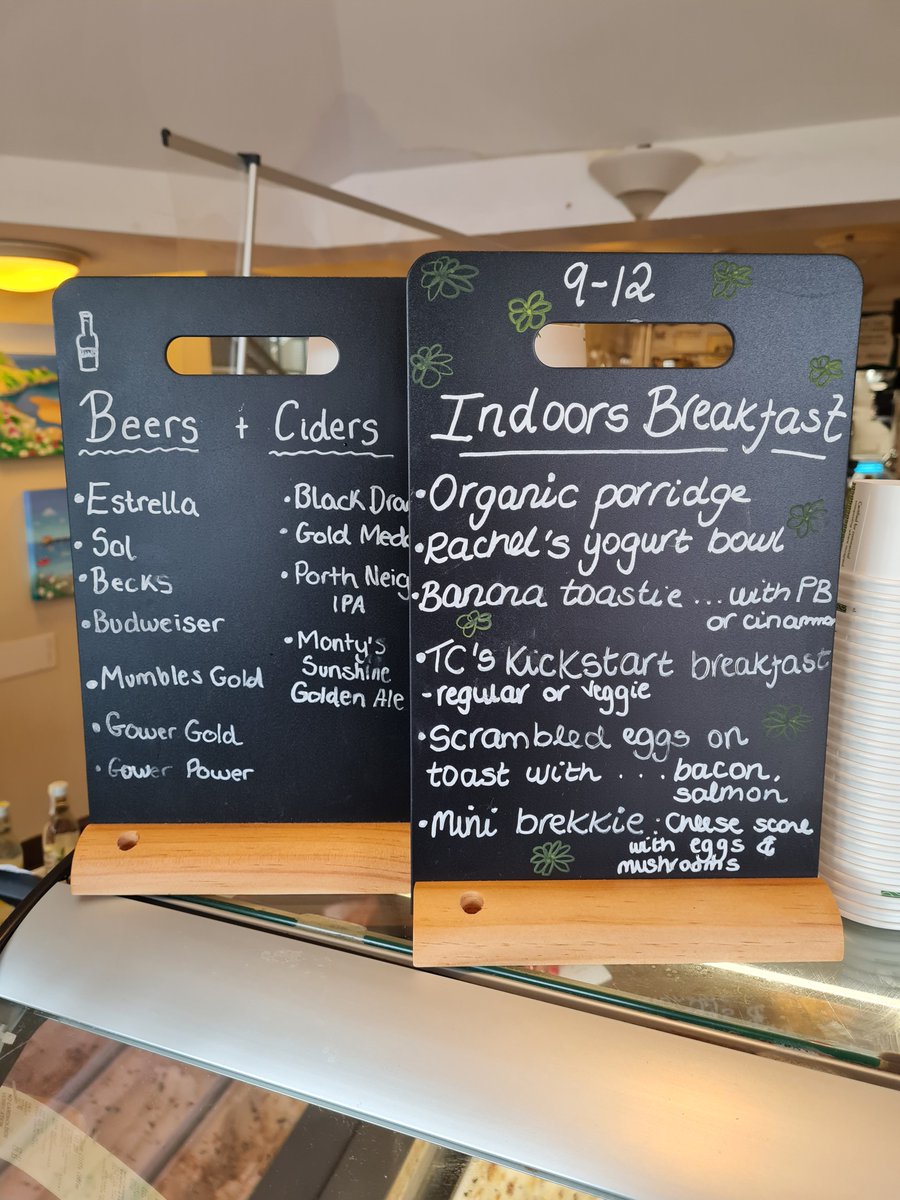 Beers + Ciders
• Estrella
• Sol
• Becks
• Budweiser
• Mumbles Gold
• Gower Gold
• Gower Power
• Black Dra
• Gold Med
• Porth Neig
IPA
• Monty's
Sunshine
Golden Ale
9-12
Indoors Breakfast
• Organic porridge
• Rachel's yogurt bowl
• Banana toastie ... with PB
or cinamon
• TC's Kickstart breakfast
- regular or veggie
• Scrambled eggs on
toast with . . . bacon,
salmon
• Mini brekkie : Cheese scone
with eggs &
mushrooms